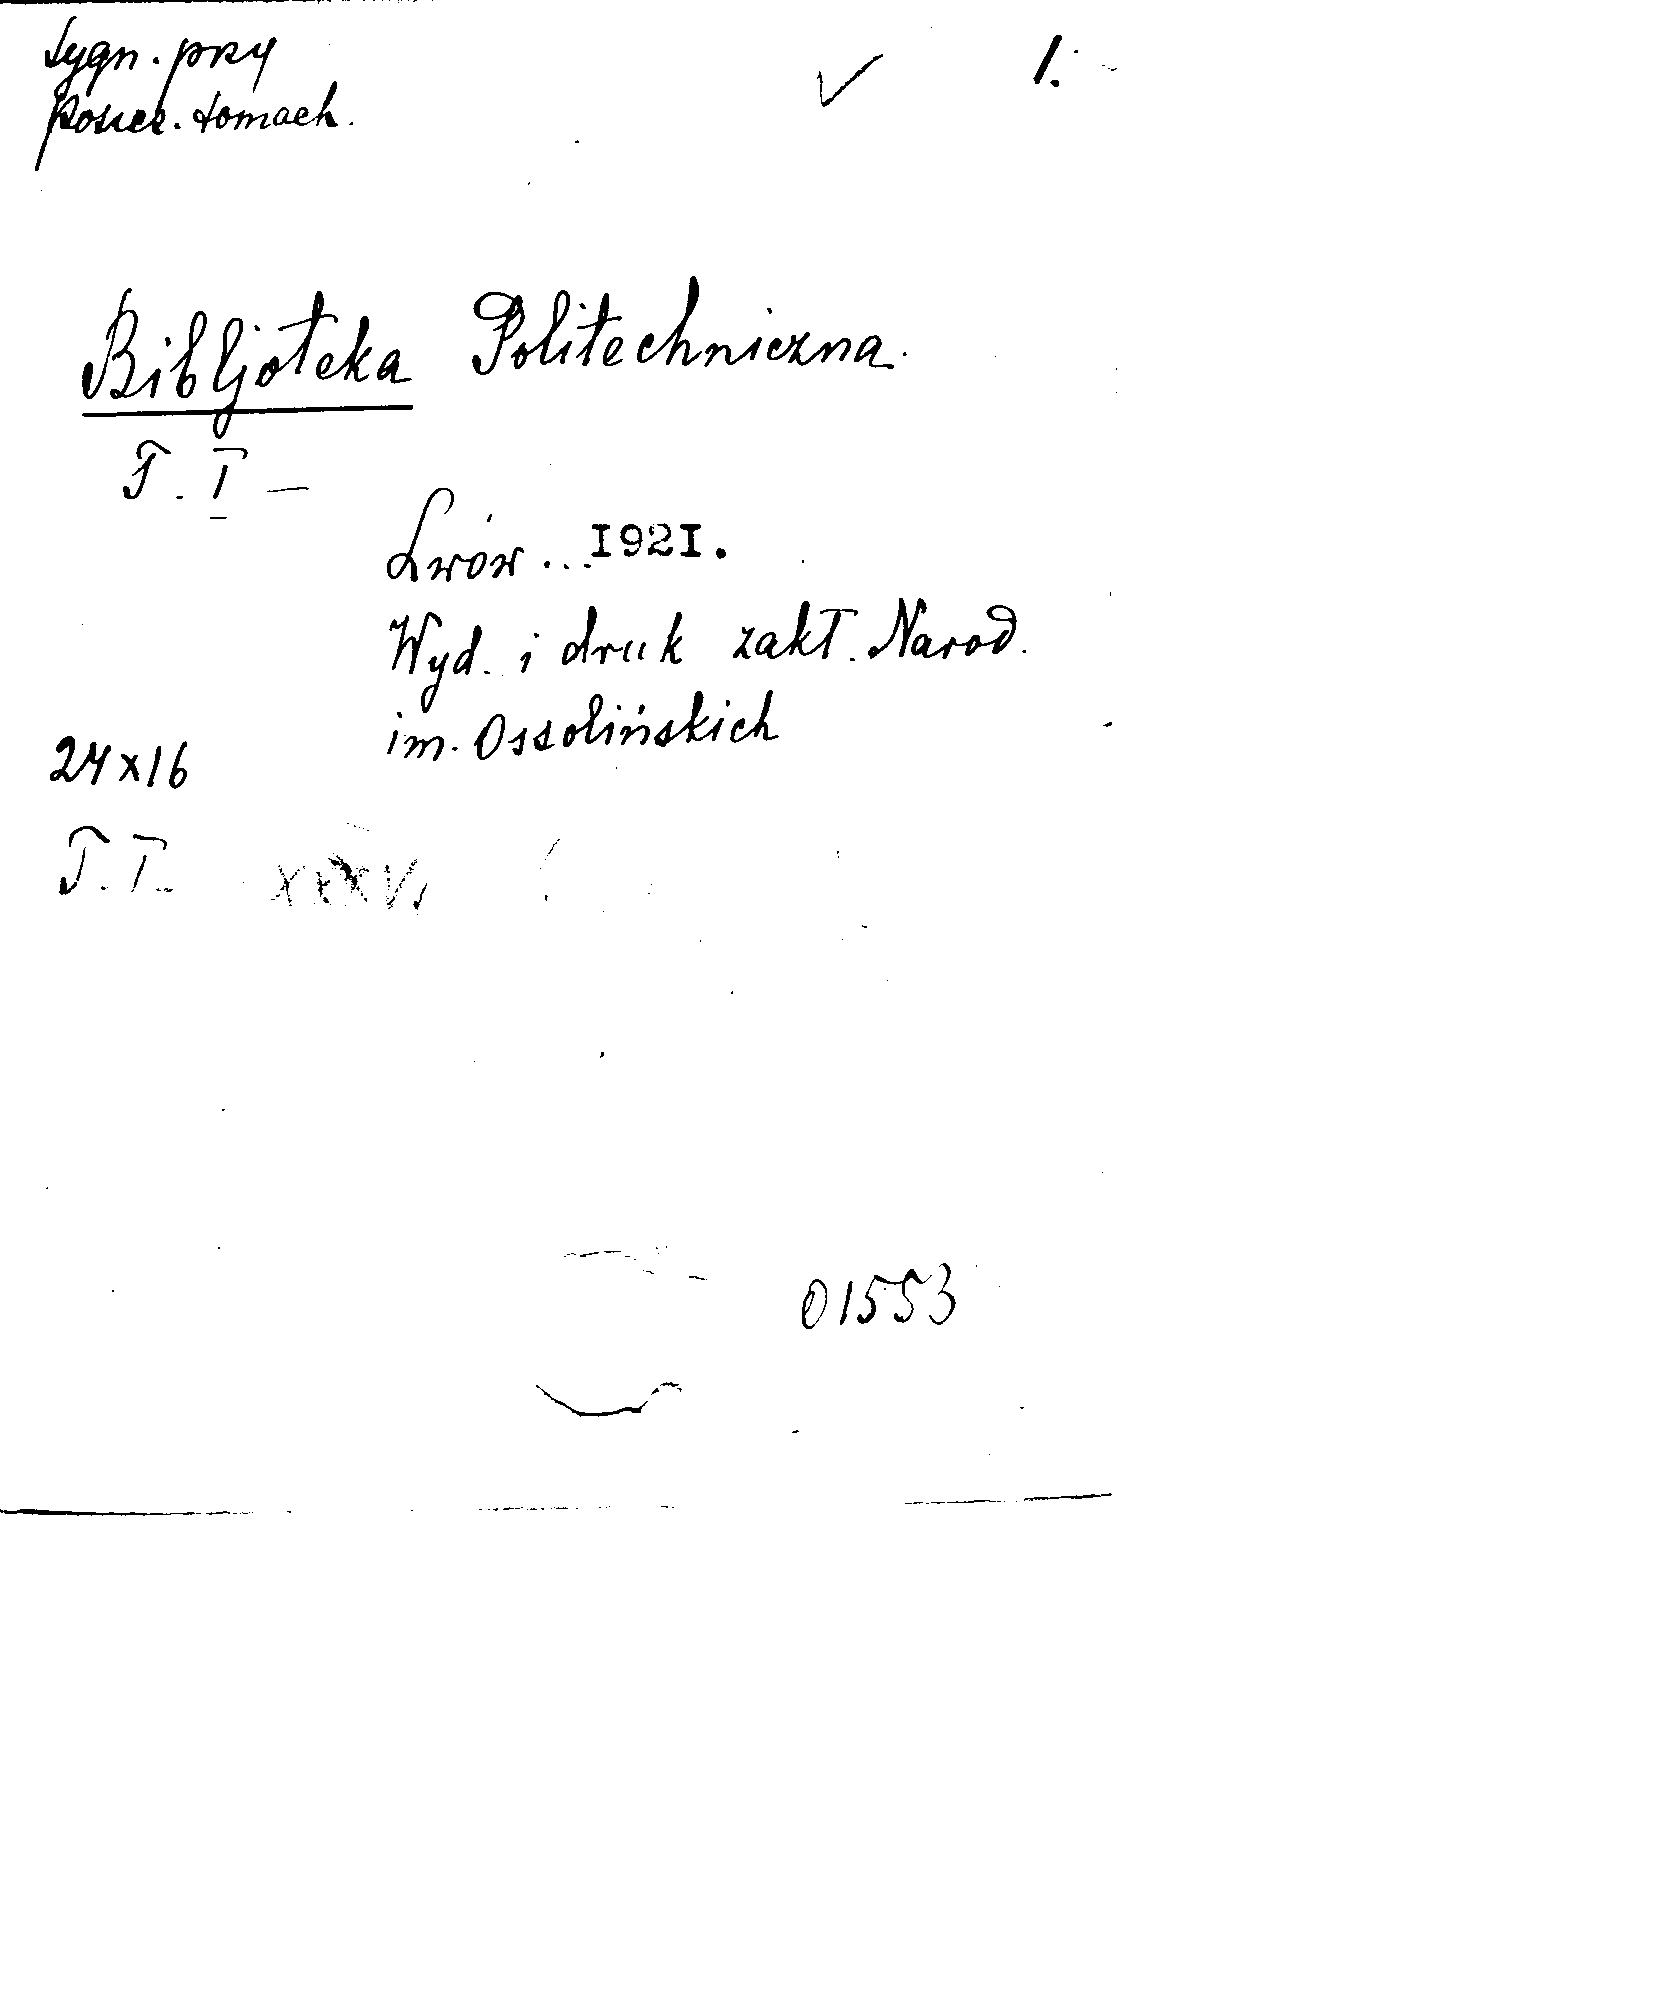 Sygn. przy
poszcz. tomach.
✓ 1.
Bibljoteka Politechniczna.
T. I –
Lwów ... 1921.
Wyd. i druk zakł. Narod.
im. Ossolińskich
24x16
T. I.
01553